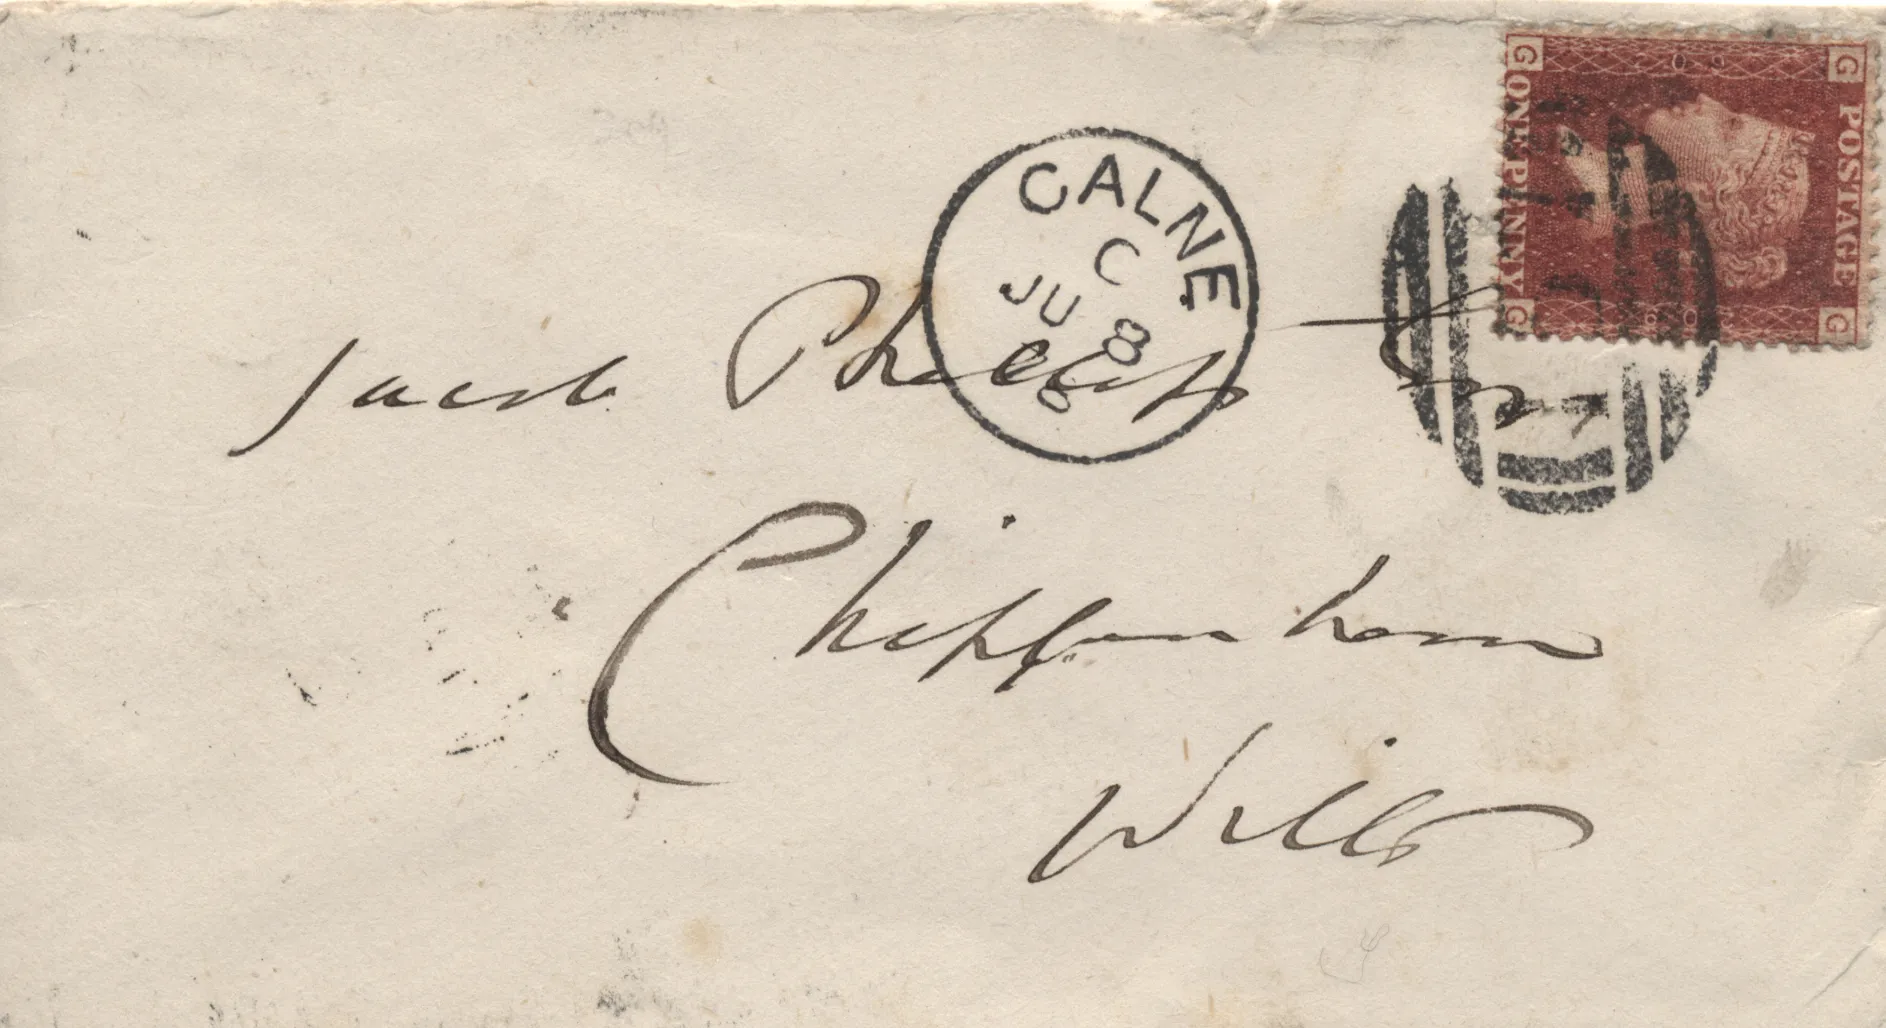 G POSTAGE G
G ONE PENNY G
CALNE
C
JU 8
Jacob Phillips Esq
Chippenham
Wilts